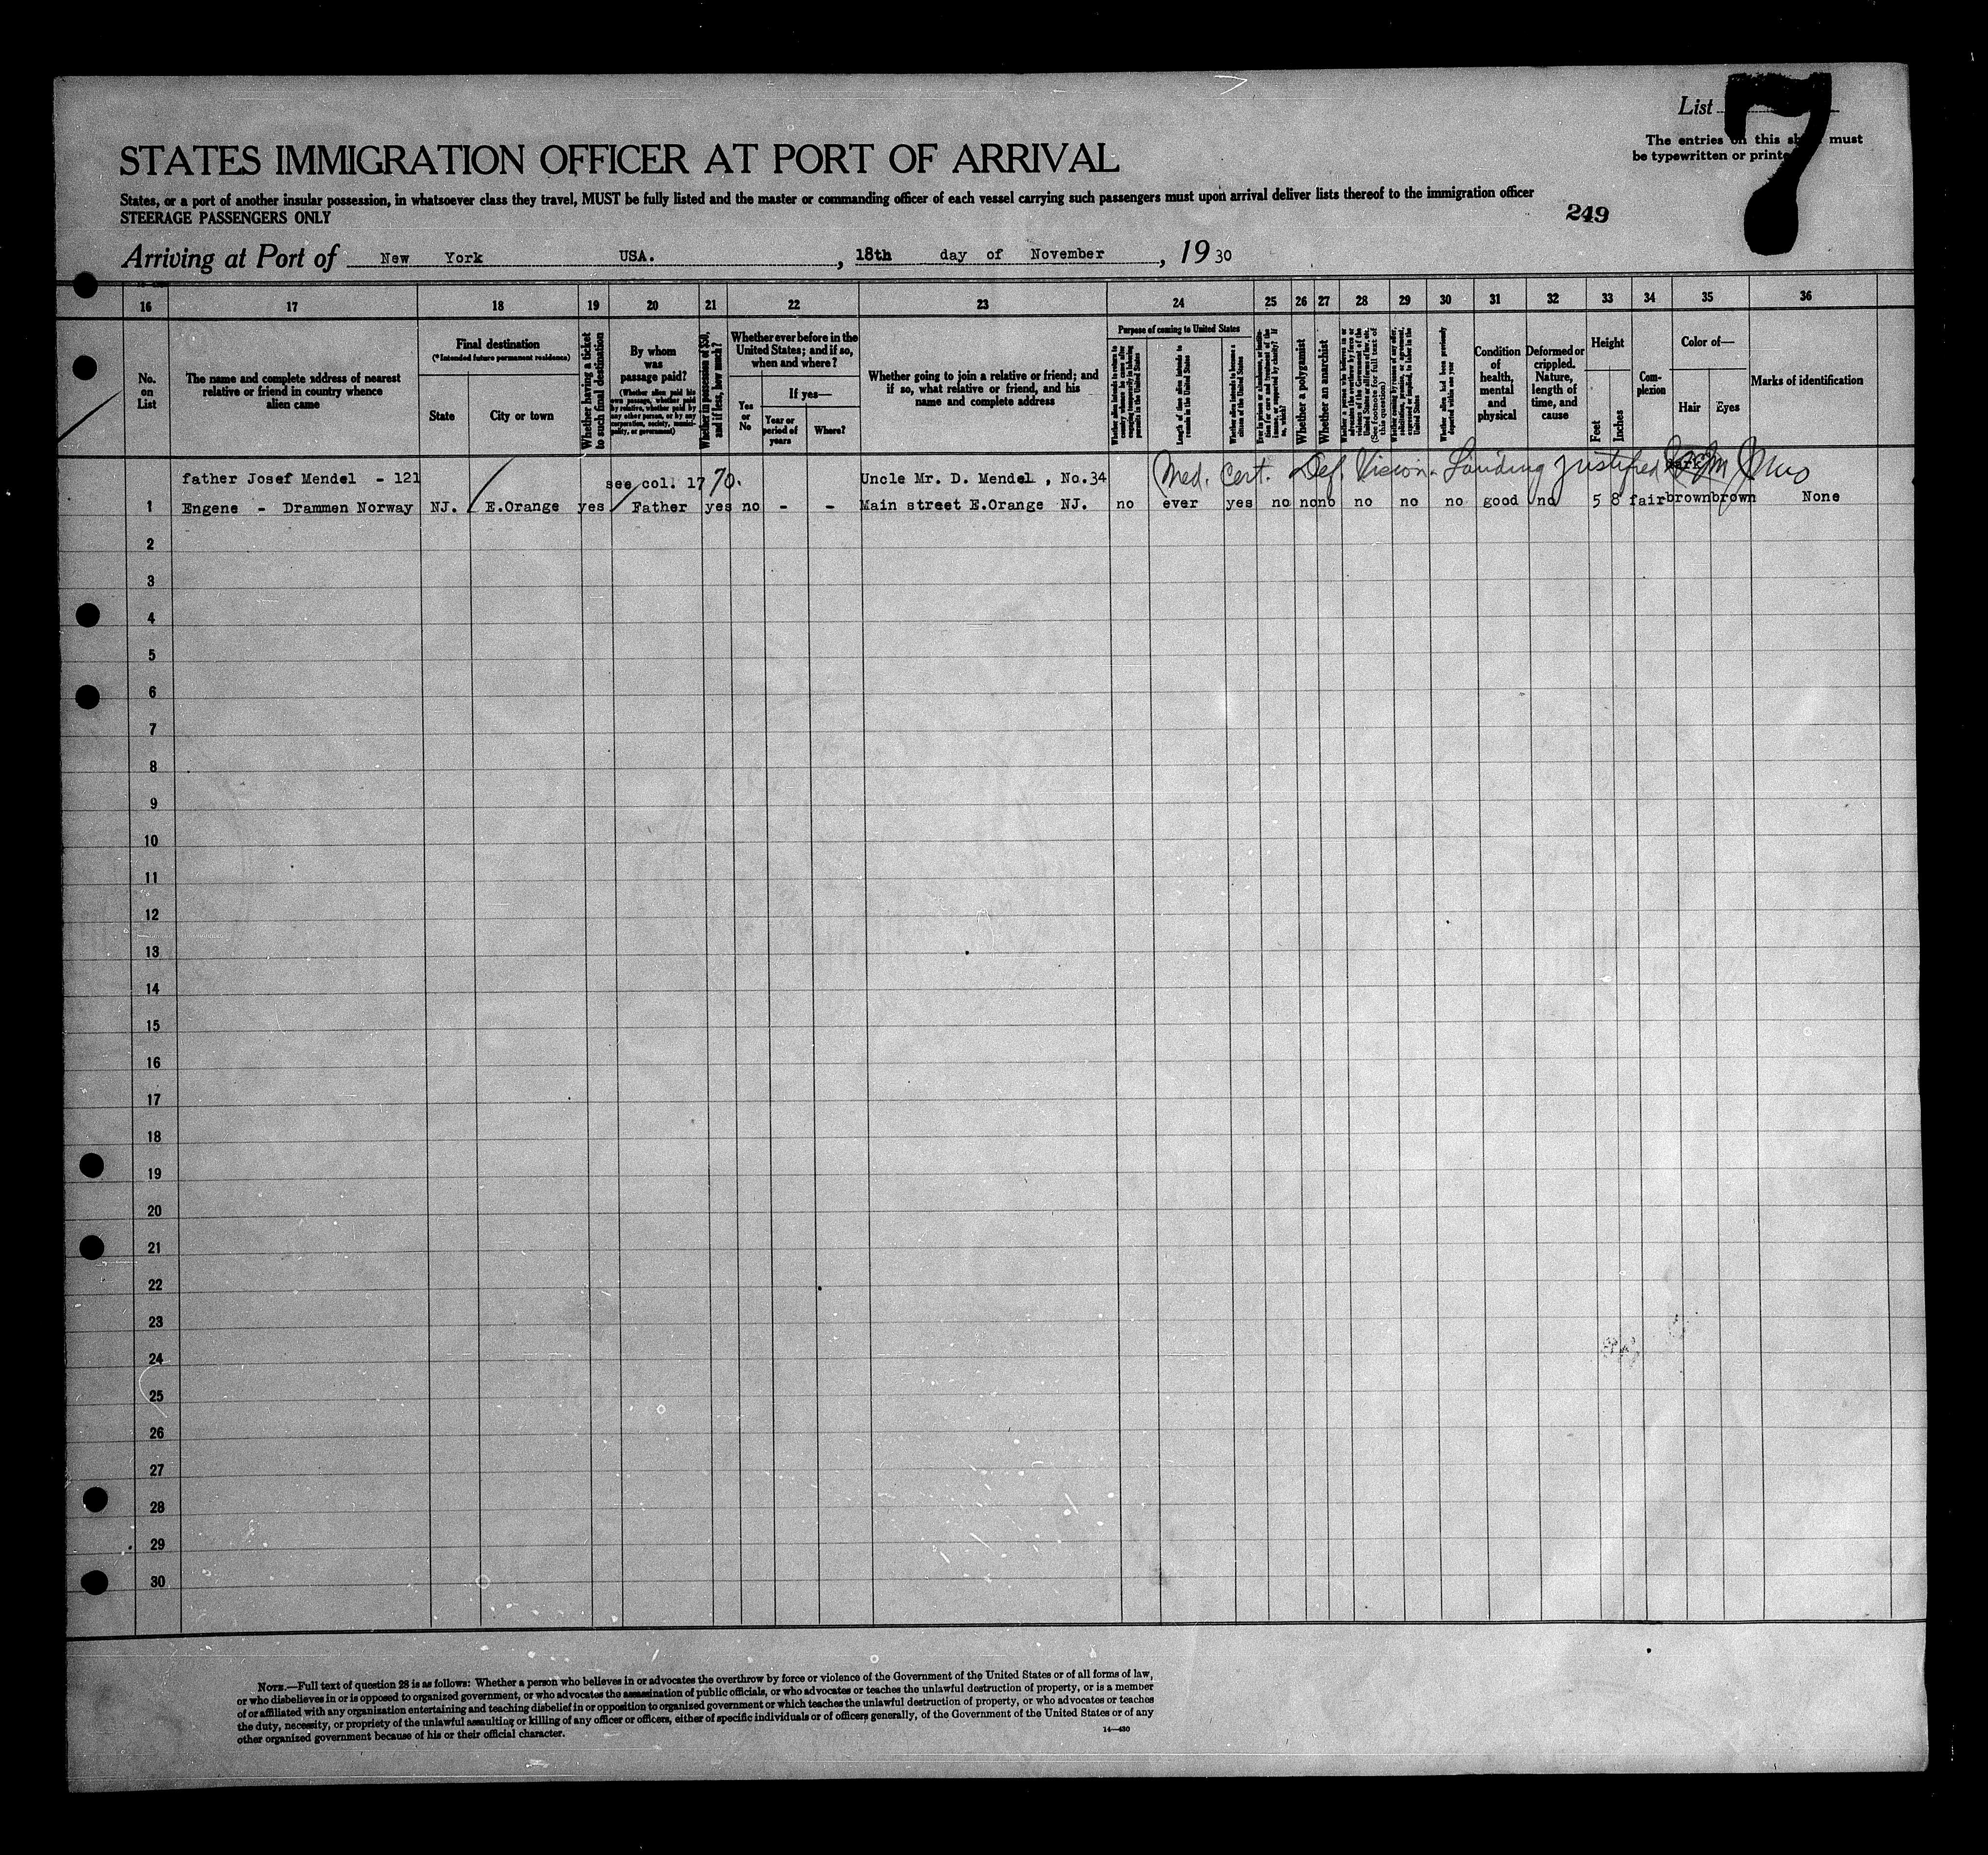 List 7
The entries on this must
be typewritten or printe
STATES IMMIGRATION OFFICER AT PORT OF ARRIVAL
States, or a port of another insular possession, in whatsoever class they travel, MUST be fully listed and the master or commanding officer of each vessel carrying such passengers must upon arrival deliver lists thereof to the immigration officer
STEERAGE PASSENGERS ONLY
249
Arriving at Port of New York USA. , 18th day of November , 1930
16 17 18 19 20 21 22 23 24 25 26 27 28 29 30 31 32 33 34 35 36
No. on List
The name and complete address of nearest relative or friend in country whence alien came
Final destination
(*Intended future permanent residence)
State
City or town
Whether having a ticket to such final destination
By whom was passage paid?
(Whether alien paid his own passage, whether paid by relative, whether paid by any other person, or by any corporation, society, municipality, or government)
Whether in possession of $50, and if less, how much?
Whether ever before in the United States; and if so, when and where?
Yes or No
If yes—
Year or period of years
Where?
Whether going to join a relative or friend; and if so, what relative or friend, and his name and complete address
Purpose of coming to United States
Length of time alien intends to remain in the United States
Whether alien intends to become a citizen of the United States
Whether a polygamist
Whether an anarchist
(See footnote for full text of this question)
Whether alien had been previously deported within one year
Condition of health, mental and physical
Deformed or crippled. Nature, length of time, and cause
Height
Feet
Inches
Complexion
Color of—
Hair
Eyes
Marks of identification
father Josef Mendel - 121 see col. 17 70. Uncle Mr. D. Mendel , No.34 Med. Cert. Def. Vision. Landing justified
1 Engene - Drammen Norway NJ. E.Orange yes Father yes no - - Main street E.Orange NJ. no ever yes no no no no no no good no 5 8 fair brown brown None
2
3
4
5
6
7
8
9
10
11
12
13
14
15
16
17
18
19
20
21
22
23
24
25
26
27
28
29
30
NOTE.—Full text of question 28 is as follows: Whether a person who believes in or advocates the overthrow by force or violence of the Government of the United States or of all forms of law,
or who disbelieves in or is opposed to organized government, or who advocates the assassination of public officials, or who advocates or teaches the unlawful destruction of property, or is a member
of or affiliated with any organization entertaining and teaching disbelief in or opposition to organized government or which teaches the unlawful destruction of property, or who advocates or teaches
the duty, necessity, or propriety of the unlawful assaulting or killing of any officer or officers, either of specific individuals or of officers generally, of the Government of the United States or of any
other organized government because of his or their official character.
14—430